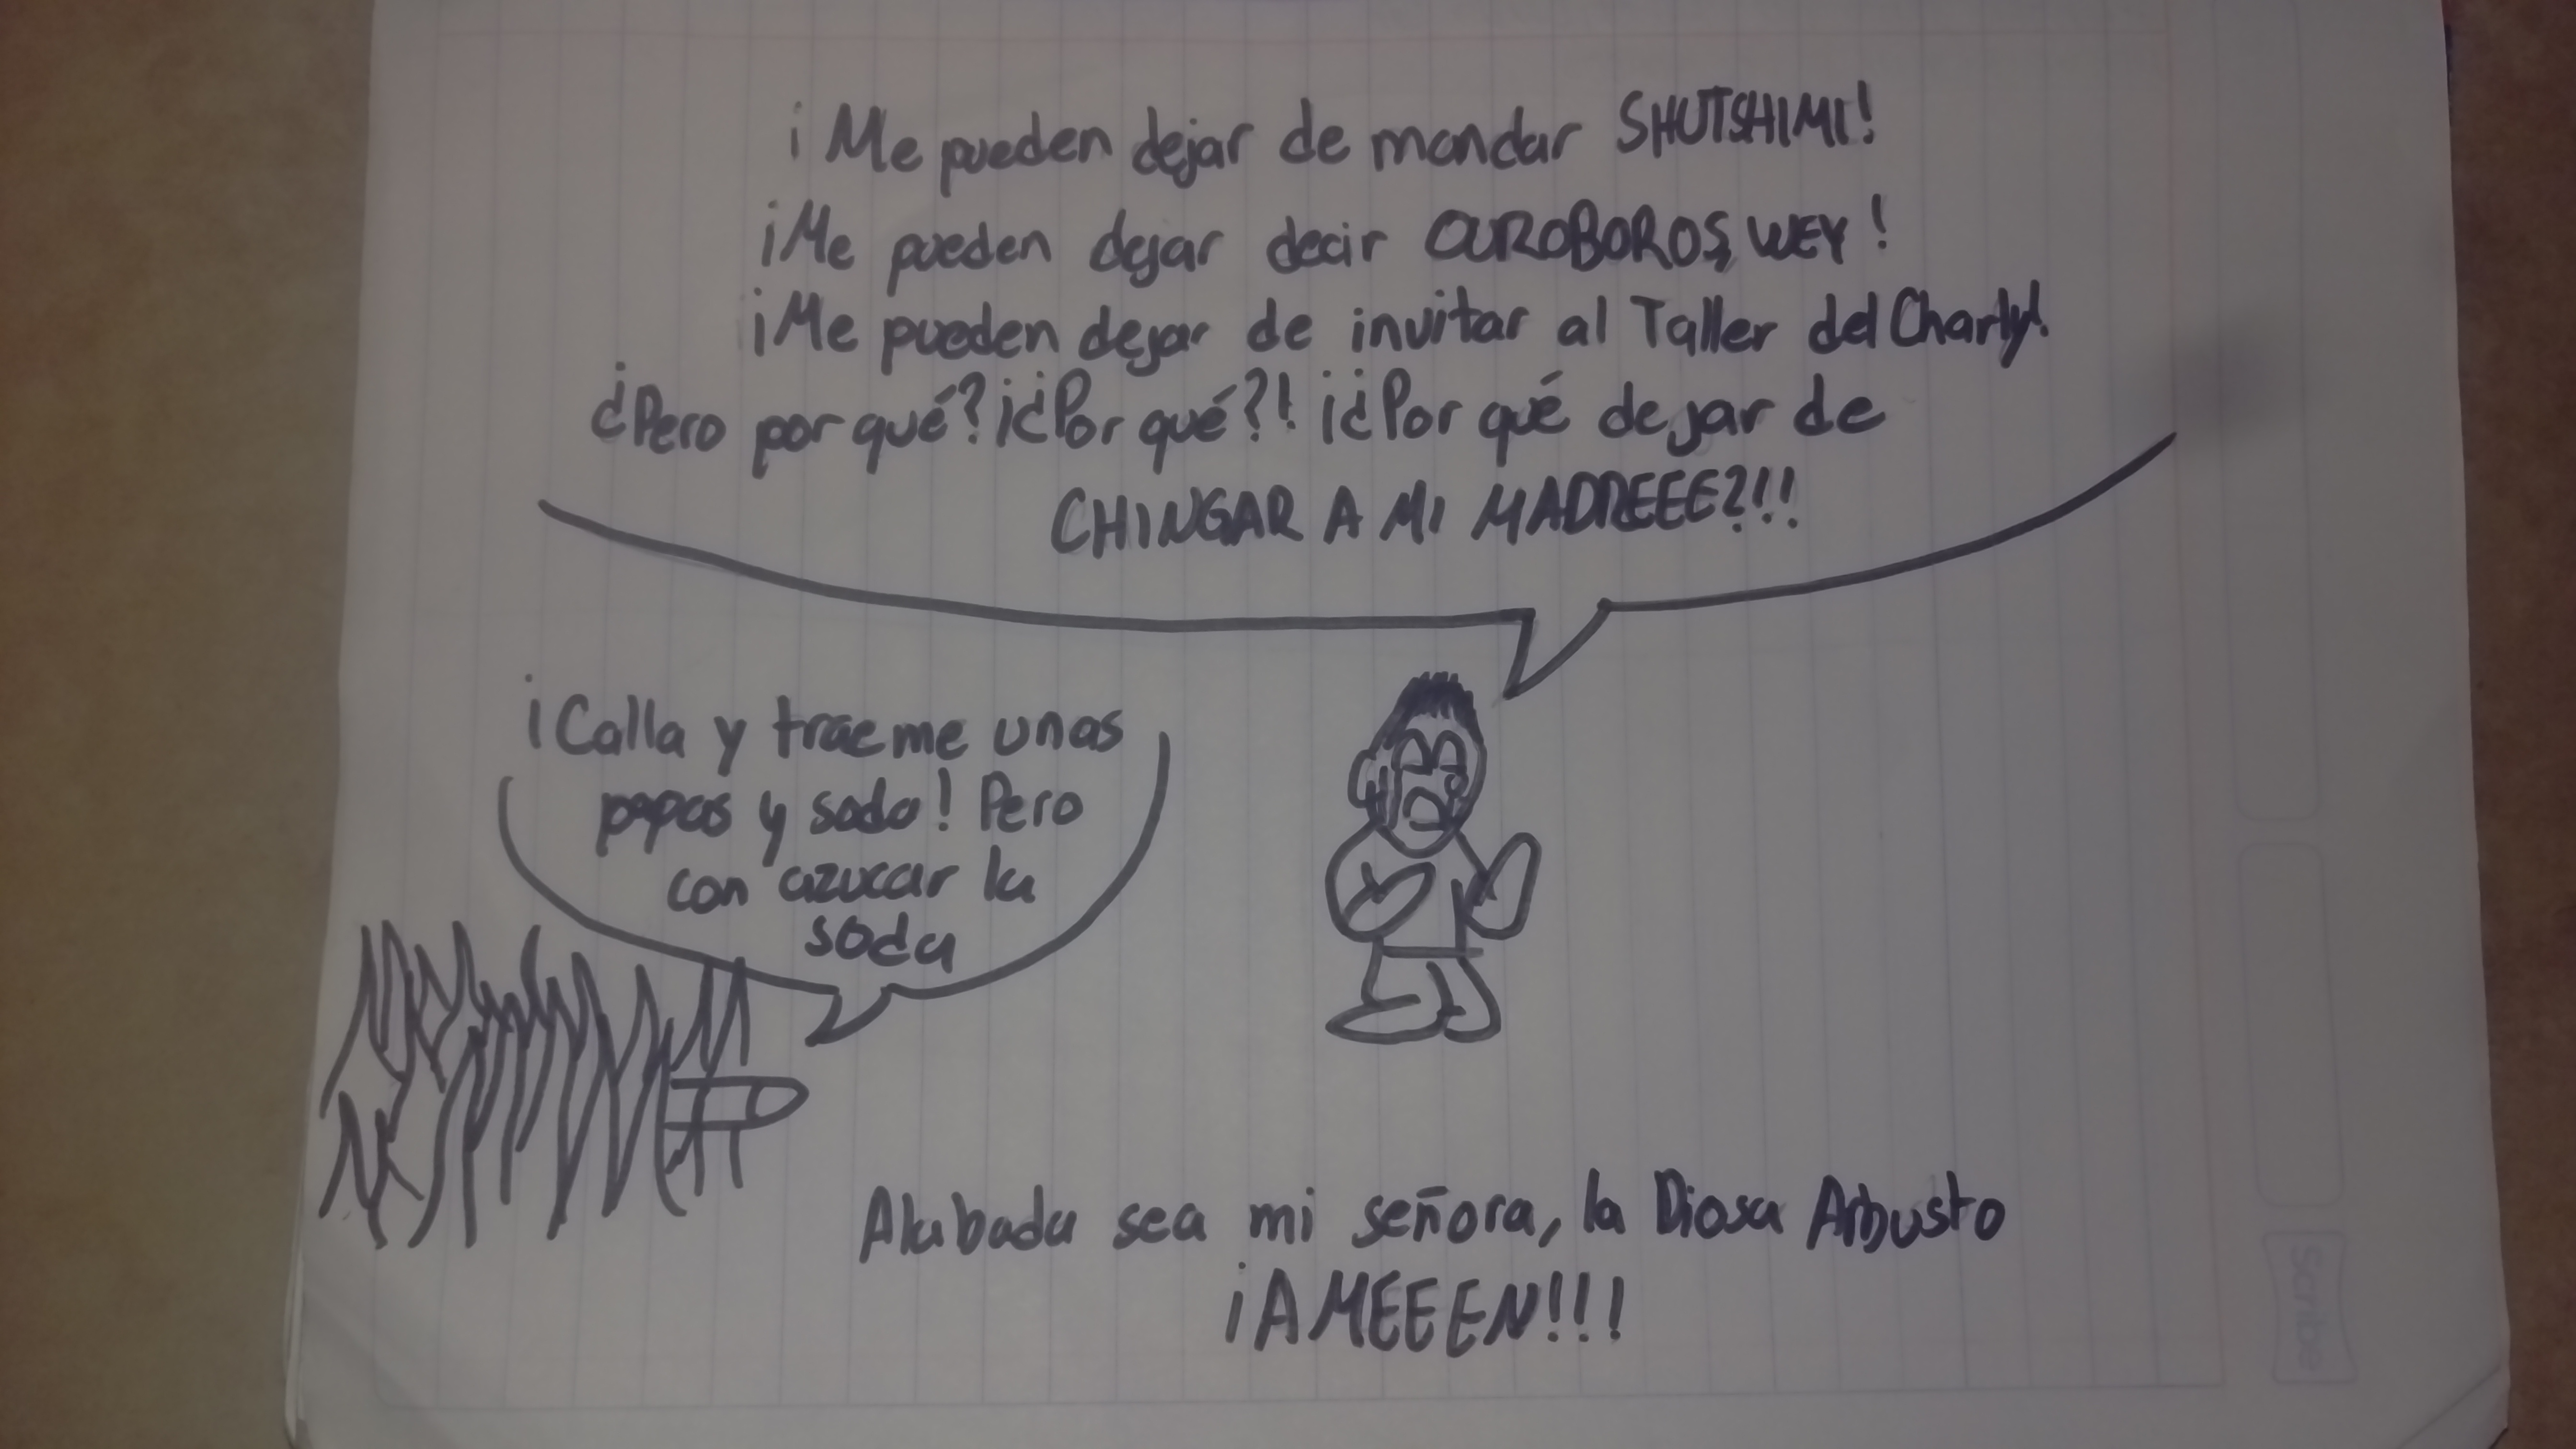 ¡Me pueden dejar de mandar SHUTSHIMI!
¡Me pueden dejar decir OUROBOROS, WEY!
¡Me pueden dejar de invitar al Taller del Charly!
¿Pero por qué? ¡¿Por qué?! ¡¿Por qué dejar de
CHINGAR A MI MADREEE?!!
¡Calla y traeme unas
papas y soda! Pero
con azucar la
soda
Alabada sea mi señora, la Diosa Arbusto
¡AMEEEN!!!
Scribe